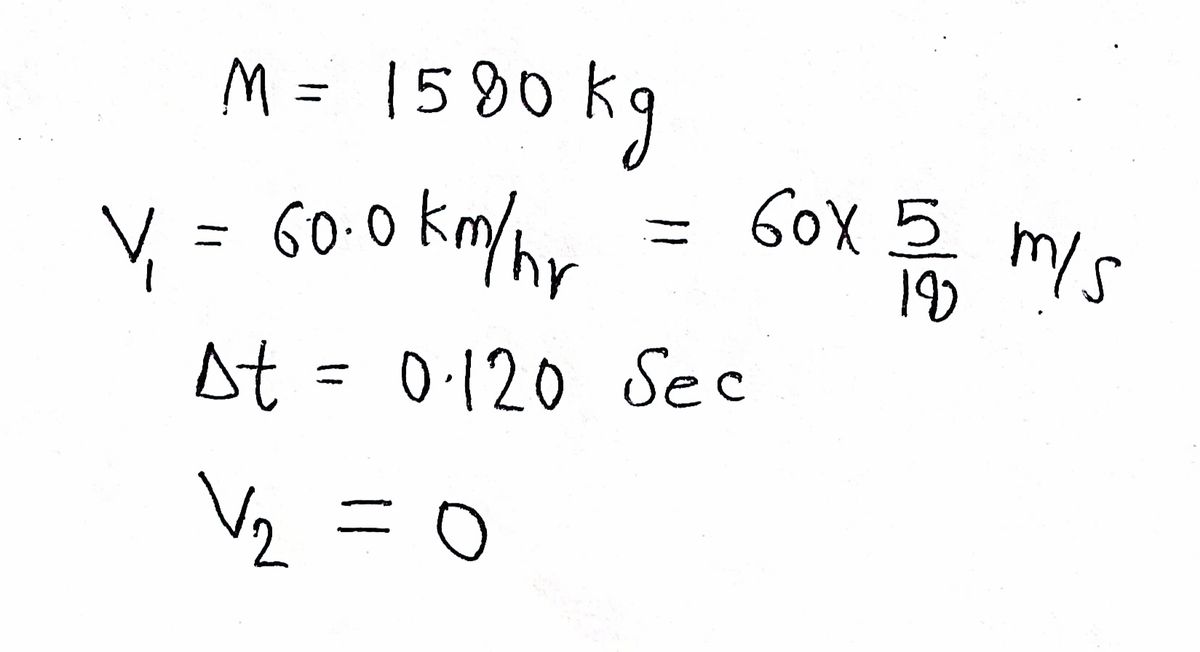 M = 1580 kg
V₁ = 60.0 km/hr = 60X 5/18 m/s
Δt = 0.120 Sec
V₂ = 0